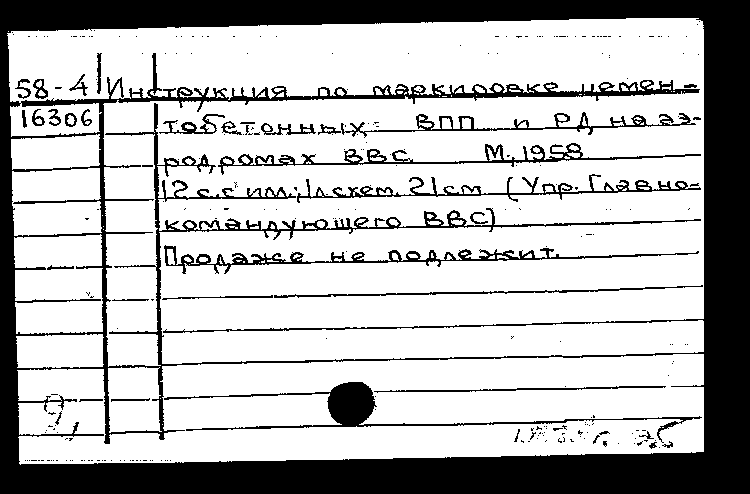 58-4 Инструкция по маркировке цемен-
16306 тобетонных ВПП и РД на аэ-
родромах ВВС. М., 1958
12 с. с илл.; 1 л. схем. 21 см (Упр. Главно-
командующего ВВС)
Продаже не подлежит.